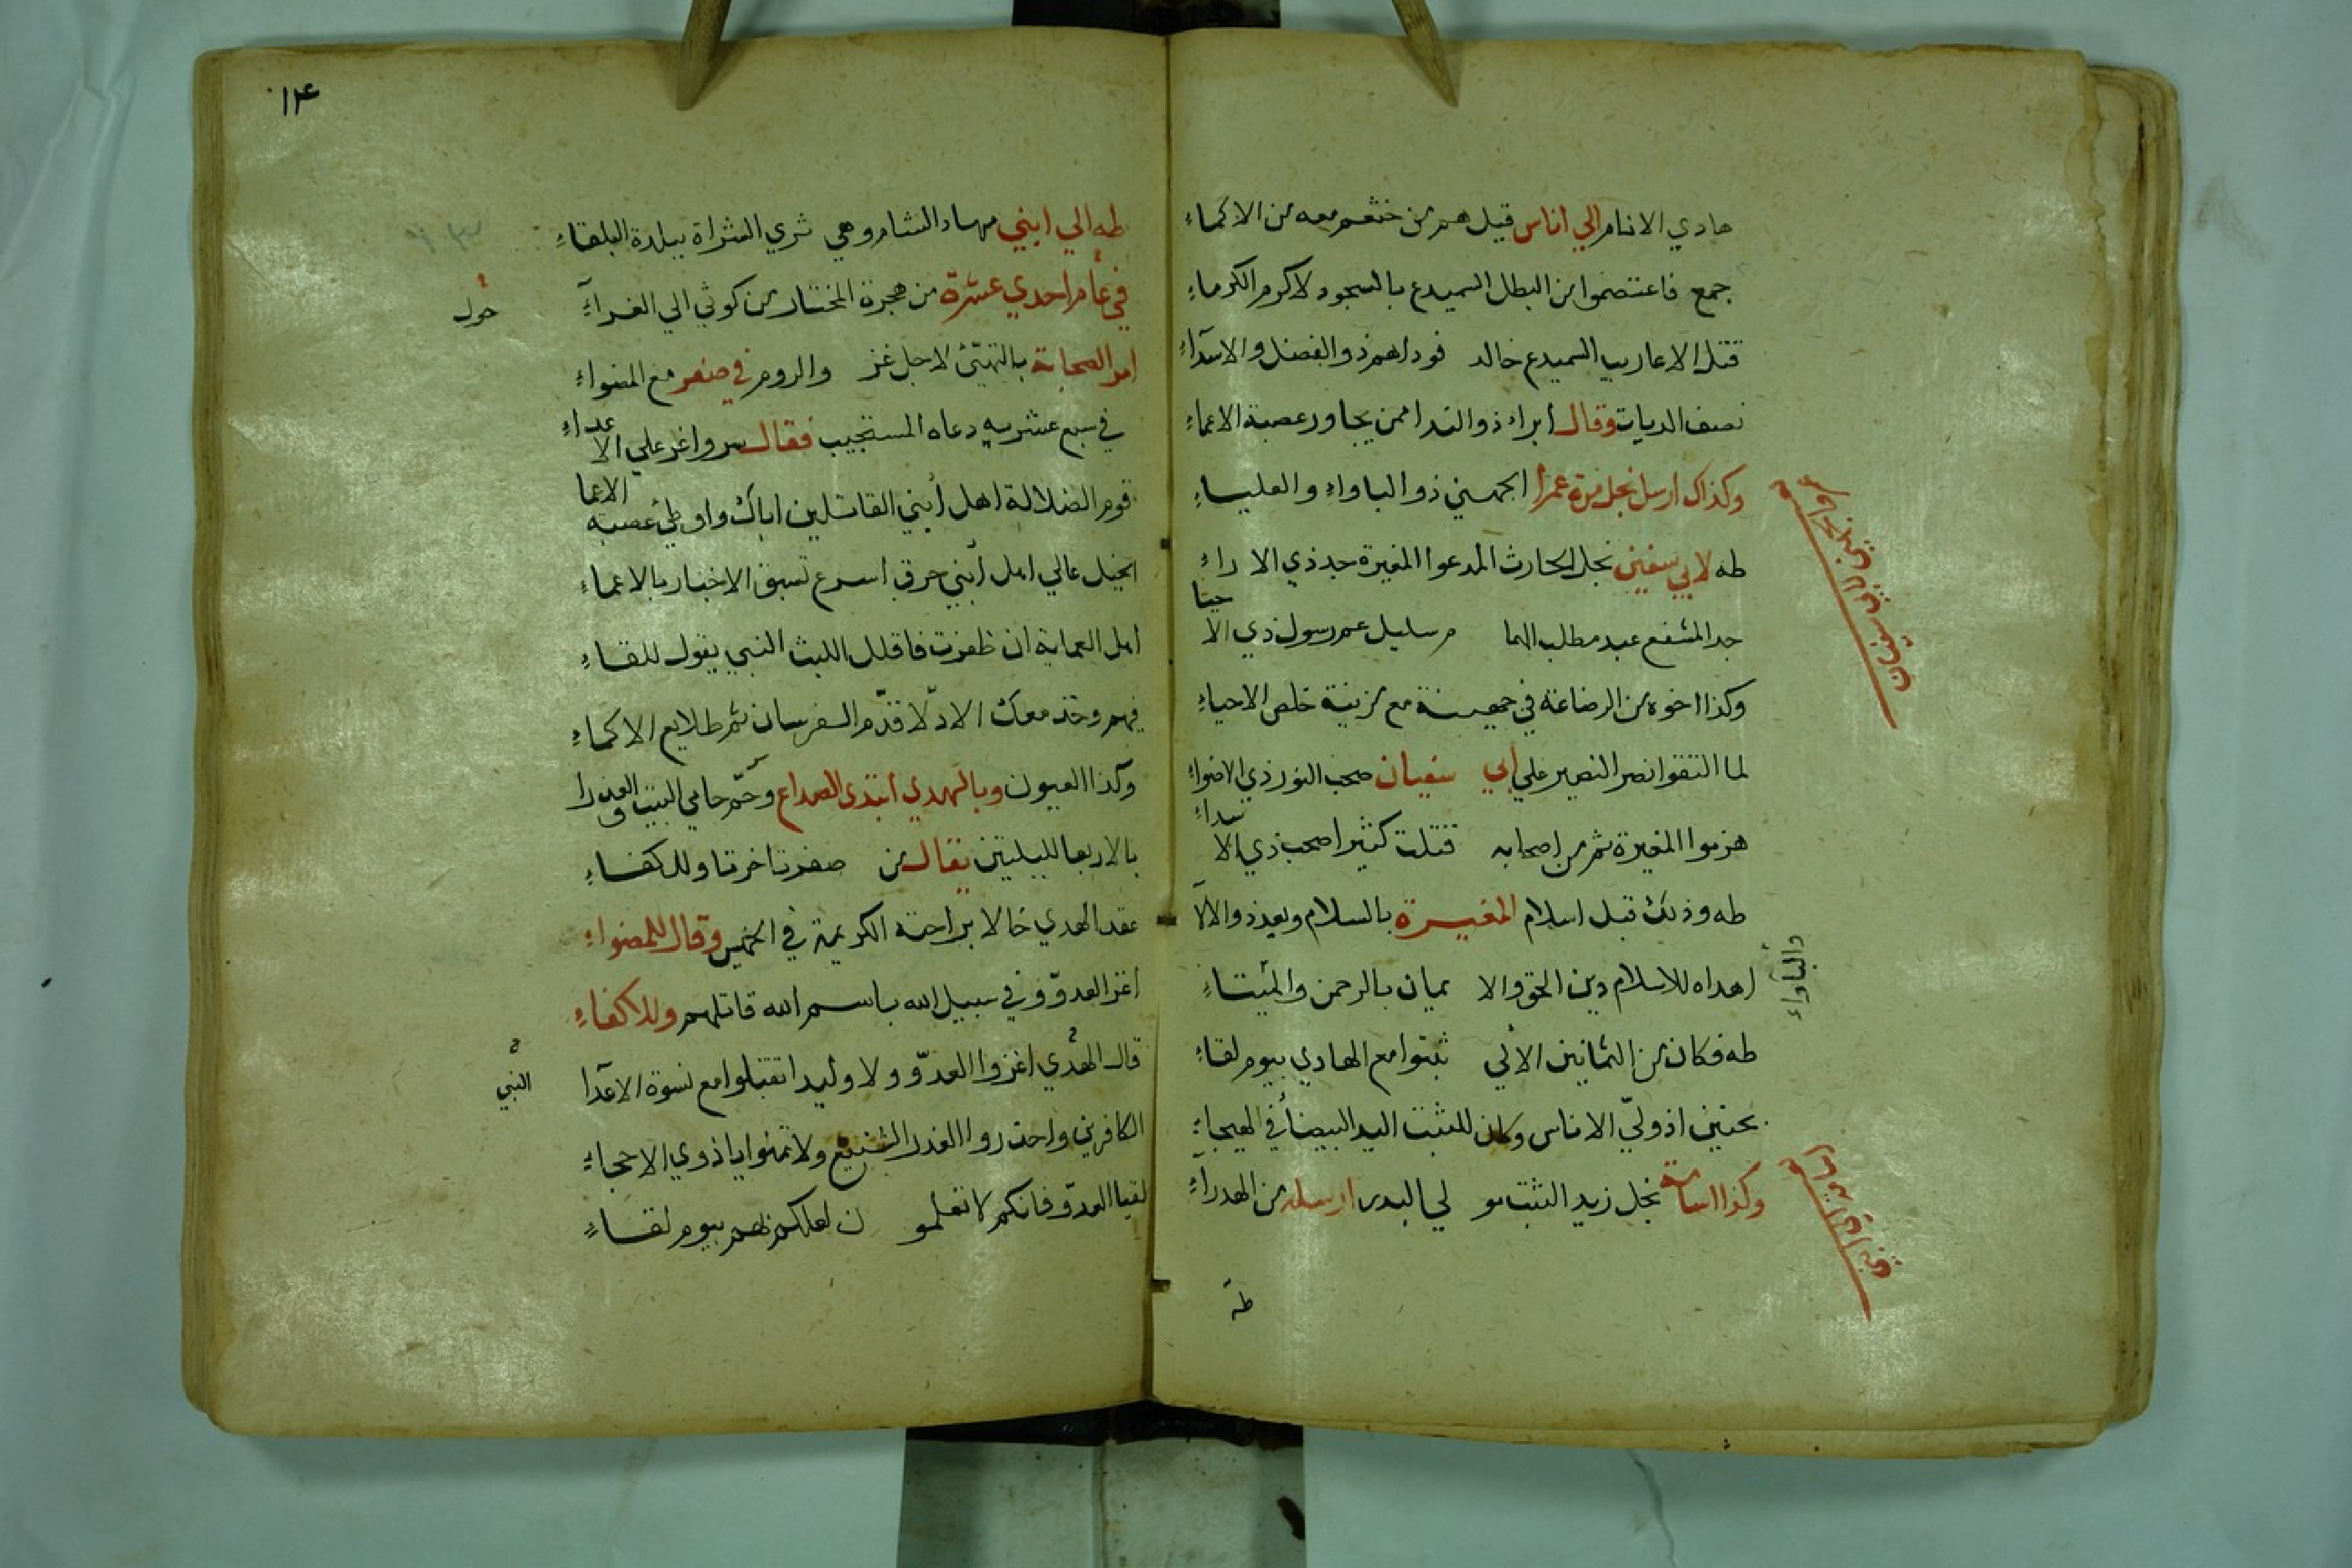 هادي الانام الي اناس قيل هم من خثعم معه من الاكماء
جمع فاعتصموا من البطل السميدع بالسجود لاكرم الكرماء
قتل الاعاريب السميدع خالد فوداهم ذو الفضل والاسداء
نصف الديات وقال ابراء ذو الندا ممن يجاور عصبة الاعماء
وكذاك ارسل نجل مرة عمرا الجهني ذو الباواء والعلياء
طه لابي سفين نجل الحارث المدعوا المغيرة جد ذي الاراء
جد المشفع عبد مطلب الهما م سليل عم رسول ذي الاحيا
وكذا اخوه من الرضاعة في جهينة مع مزينة خلص الاحياء
لما التقوا نصر النصير علي ابي سفيان صحب النور ذي الاضواء
هزموا المغيرة ثم من اصحابه قتلت كثيرا صحب ذي الاسداء
طه وذلك قبل اسلام المغيرة بالسلام وبعد ذو الالآ
والباواء
اهداه للاسلام دين الحق والا يمان بالرحمن والميتاء
طه فكان من الثمانين الألي ثبتوا مع الهادي بيوم لقاء
بحنين اذ ولي الاناس وكان للثبت اليد البيضأ في الهيجاء
وكذا اسامة نجل زيد الثبت مو لي البدر ارسله من الهدراء
طه
١٢٤
طه الي ابني مهاد الشام وهي ثري الشراة ببلدة البلقاء
في عام احدي عشرة من هجرة المختار من كوثي الي الغراء
حول
امر الصحابة بالتهيئ لاجل غز والروم في صفر مع المضواء
في سبع عشريه دعاه المستجيب فقال سر واغر علي الاعداء
قوم الضلالة اهل أبني القاتلين اباك واوطئ عصبة الاعما
الخيل عالي اهل أبني حرق اسرع تسبق الاخبار بالاعماء
اهل العماية ان ظفرت فاقلل اللبث النبي يقول للقاء
فيهم وخذ معك الادلا قدم السفرسان ثم طلايع الاكماء
وكذا العيون وبالهدي أبتدى الصداع وحم حامي البيت والعدرا
بالاربعا لليلتين يقال من صفر تاخرتا وللكفاء
عقد الهدي خالا براحته الكريمة في الخميس وقال للمضواء
اغز العدو وفي سبيل الله باسم الله قاتلهم وللاكفاء
قال الهدي اغزوا العدو ولا وليدا تقتلوا مع نسوة الاعدا
النبي
الكافرين واحذروا الغدر الشنيع ولا تمنوا يا ذوي الاحجاء
لقيا العدو فانكم لا تعلمو ن لعلكم بهم بيوم لقاء